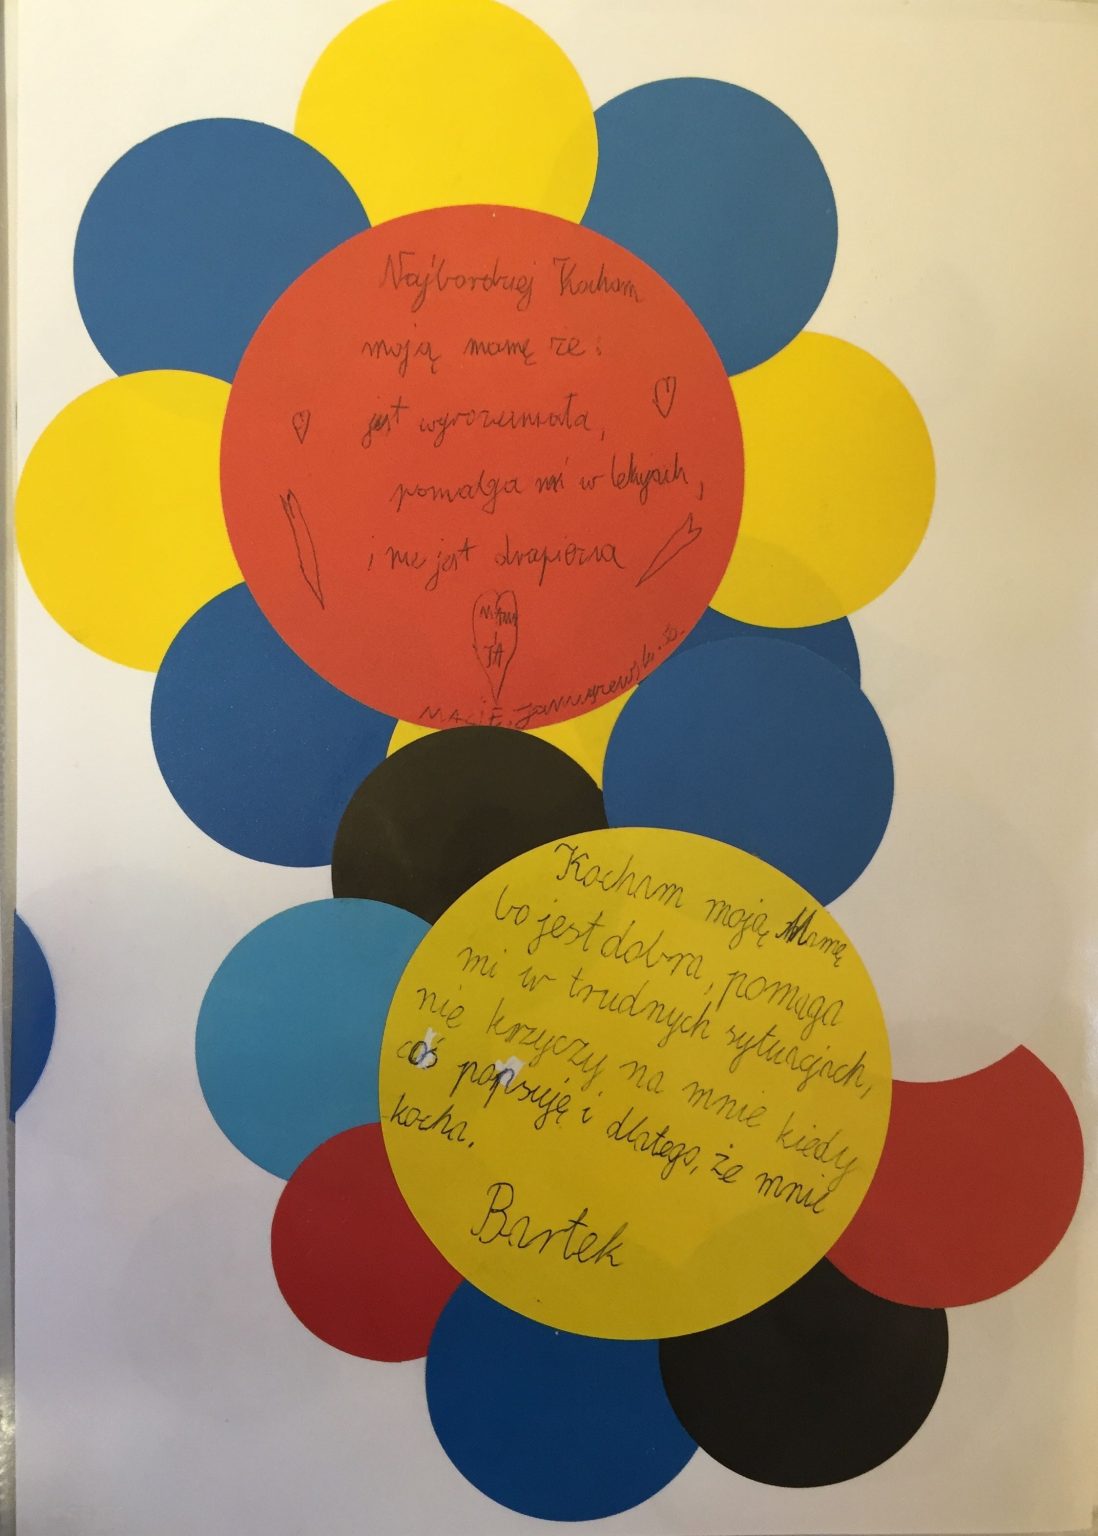 Najbardziej Kocham
moją mamę że:
jest wyrozumiała,
pomalga mi w lekcjach,
i nie jest drapieżna
MAMA
I
JA
Kocham moją Mamę
bo jest dobra, pomaga
mi w trudnych sytuacjach,
nie krzyczy na mnie kiedy
coś popsuję i dlatego, że mnie
kocha.
Bartek